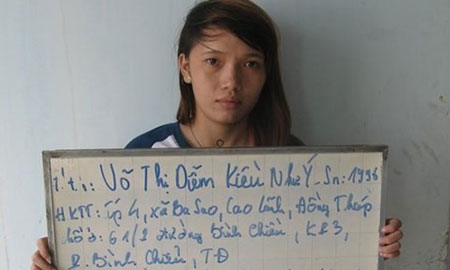 T.t.: Võ Thị Diễm Kiều Như Ý - Sn: 1996
HKTT: Ấp 4, xã Ba Sao, Cao Lãnh, Đồng Tháp
Chỗ ở: 61/2 đường Bình Chiểu, KP3,
P. Bình Chiểu, TĐ